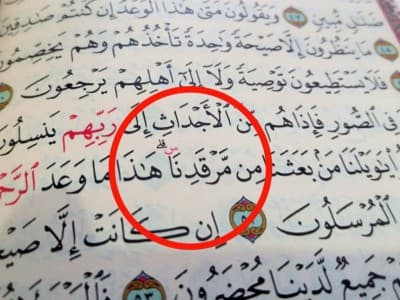 ضَلَٰلٍ مُّبِينٍ ٤٧ وَيَقُولُونَ مَتَىٰ هَٰذَا ٱلْوَعْدُ إِن كُنتُمْ صَٰدِقِينَ
٤٨ مَا يَنظُرُونَ إِلَّا صَيْحَةً وَٰحِدَةً تَأْخُذُهُمْ وَهُمْ يَخِصِّمُونَ
فَلَا يَسْتَطِيعُونَ تَوْصِيَةً وَلَآ إِلَىٰٓ أَهْلِهِمْ يَرْجِعُونَ
فِى ٱلصُّورِ فَإِذَا هُم مِّنَ ٱلْأَجْدَاثِ إِلَىٰ رَبِّهِمْ يَنسِلُونَ
يَٰوَيْلَنَا مَنۢ بَعَثَنَا مِن مَّرْقَدِنَا ۜ ۗ هَٰذَا مَا وَعَدَ ٱلرَّحْ
ٱلْمُرْسَلُونَ ٥٢ إِن كَانَتْ إِلَّا صَيْ
جَمِيعٌ لَّدَيْنَا مُحْضَرُونَ ٥٣ فَٱلْيَوْمَ